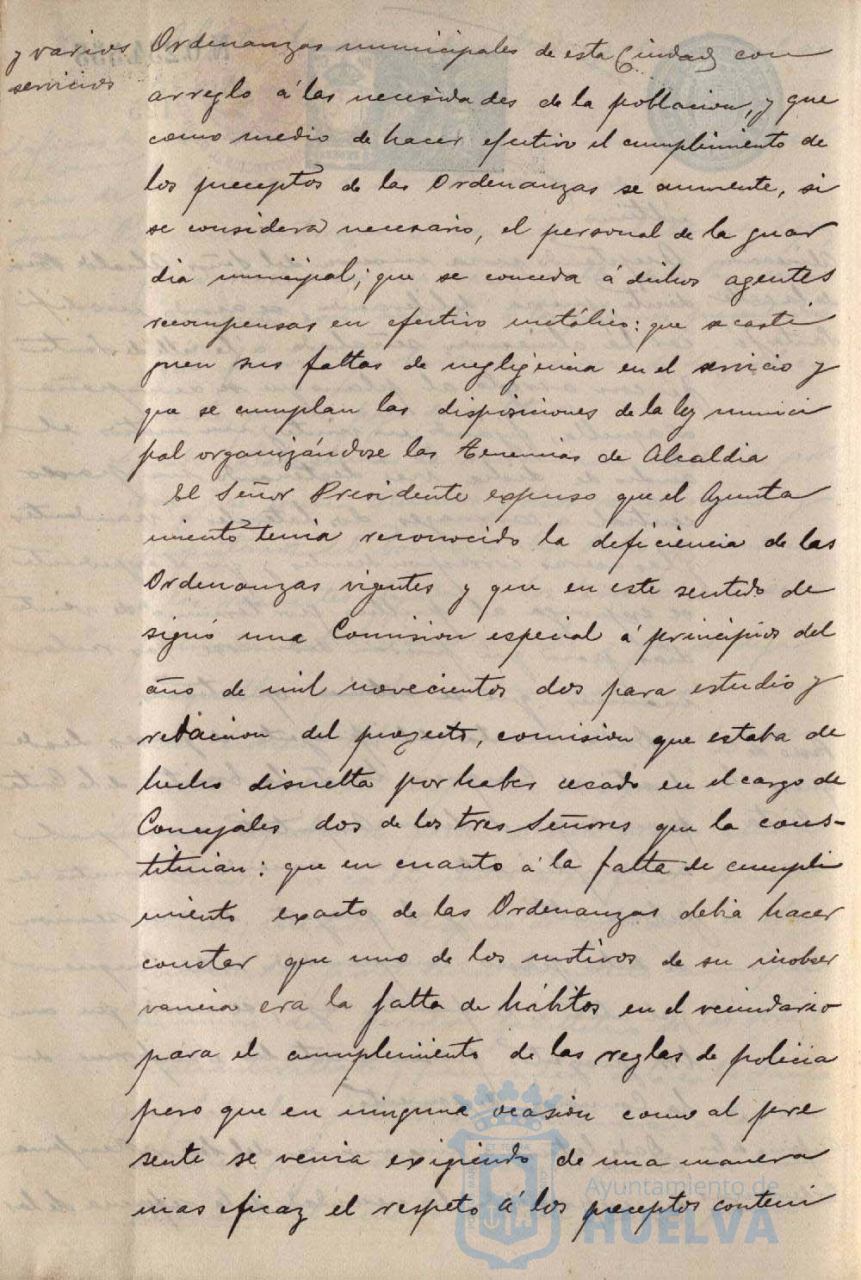 y varios
servicios
Ordenanzas municipales de esta Ciudad con
arreglo á las necesidades de la poblacion, y que
como medio de hacer efectivo el cumplimiento de
los preceptos de las Ordenanzas se aumente, si
se considera necesario, el personal de la guar
dia municipal; que se conceda á dichos agentes
recompensas en efectivo metálico: que se casti
guen sus faltas de negligencia en el servicio y
que se cumplan las disposiciones de la ley munici
pal organizándose las tenencias de Alcaldia
El Señor Presidente expuso que el Ayunta
miento tenia reconocido la deficiencia de las
Ordenanzas vigentes y que en este sentido de
signó una Comision especial á principios del
año de mil novecientos dos para estudio y
redaccion del proyecto, comision que estaba de
hecho disuelta por haber cesado en el cargo de
Concejales dos de los tres Señores que la cons-
tituian: que en cuanto á la falta de cumpli
miento exacto de las Ordenanzas debia hacer
constar que uno de los motivos de su inobser
vancia era la falta de hábitos en el vecindario
para el cumplimiento de las reglas de policia
pero que en ninguna ocasion como al pre
sente se venia exigiendo de una manera
mas eficaz el respeto á los preceptos conteni
Ayuntamiento de
HUELVA